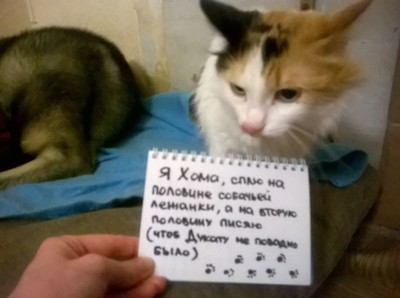 Я Хома, сплю на
половине собачьей
лежанки, а на вторую
половину писяю
(чтоб Дукату не повадно
было)